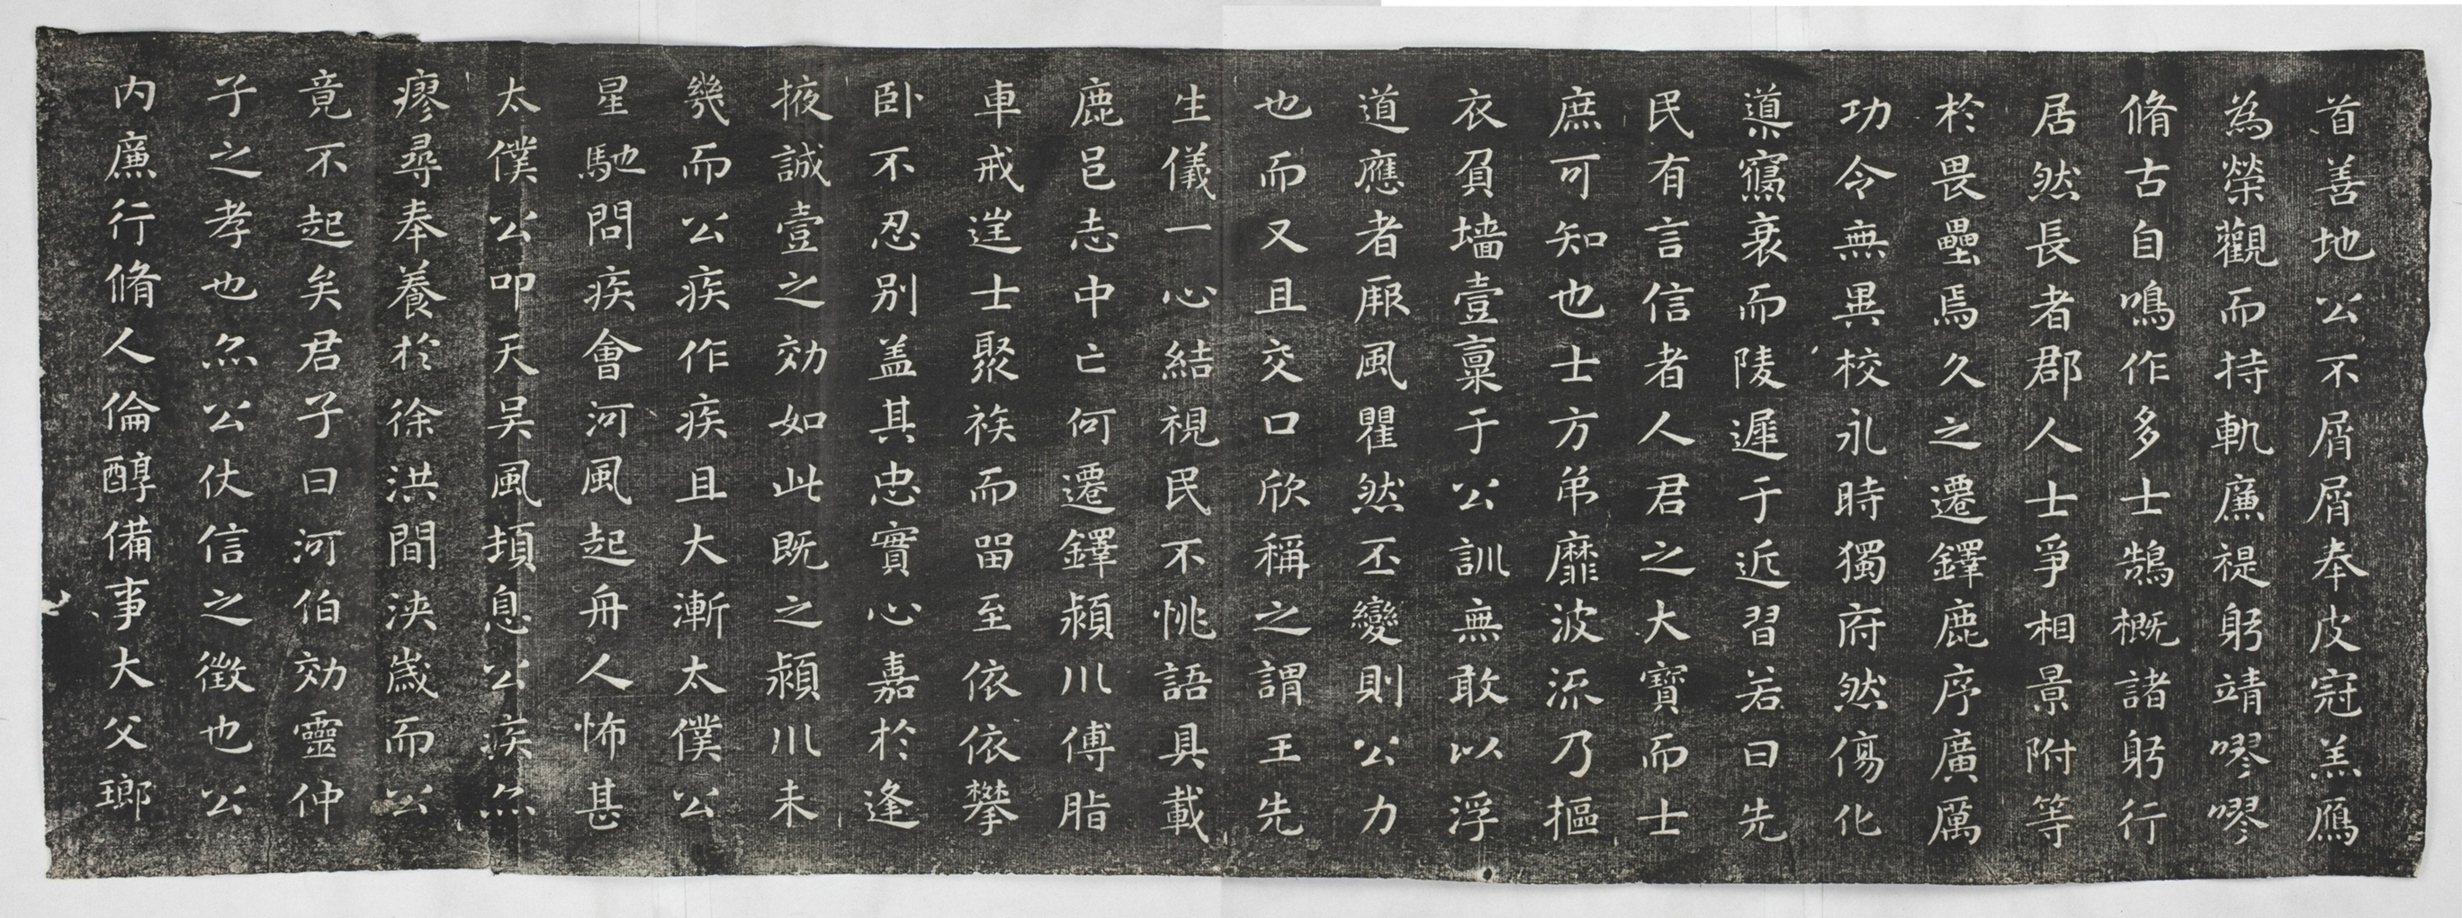 首善地公不屑屑奉皮冠羔鴈
為榮觀而持軌廉褆躬靖嘐嘐
脩古自鳴作多士鵠概諸躬行
居然長者郡人士爭相景附等
於畏壘焉久之遷鐸鹿序廣厲
功令無異校永時獨府然傷化
䆃窵衰而陵遲于近習若曰先
民有言信者人君之大寶而士
庶可知也士方弟靡波流乃摳
衣負墻壹稟于公訓無敢以浮
道應者厥風瞿然丕變則公力
也而又且交口欣稱之謂王先
生儀一心結視民不恌語具載
鹿邑志中亡何遷鐸潁川傅脂
車戒逬士聚族而留至依依攀
臥不忍別盖其忠實心嘉於逢
掖誠壹之効如此既之潁川未
幾而公疾作疾且大漸太僕公
星馳問疾會河風起舟人怖甚
太僕公叩天吴風頓息公疾尒
瘳尋奉養於徐洪間浹歲而公
竟不起矣君子曰河伯効靈仲
子之孝也尒公仗信之徵也公
内廉行脩人倫醇備事大父瑯